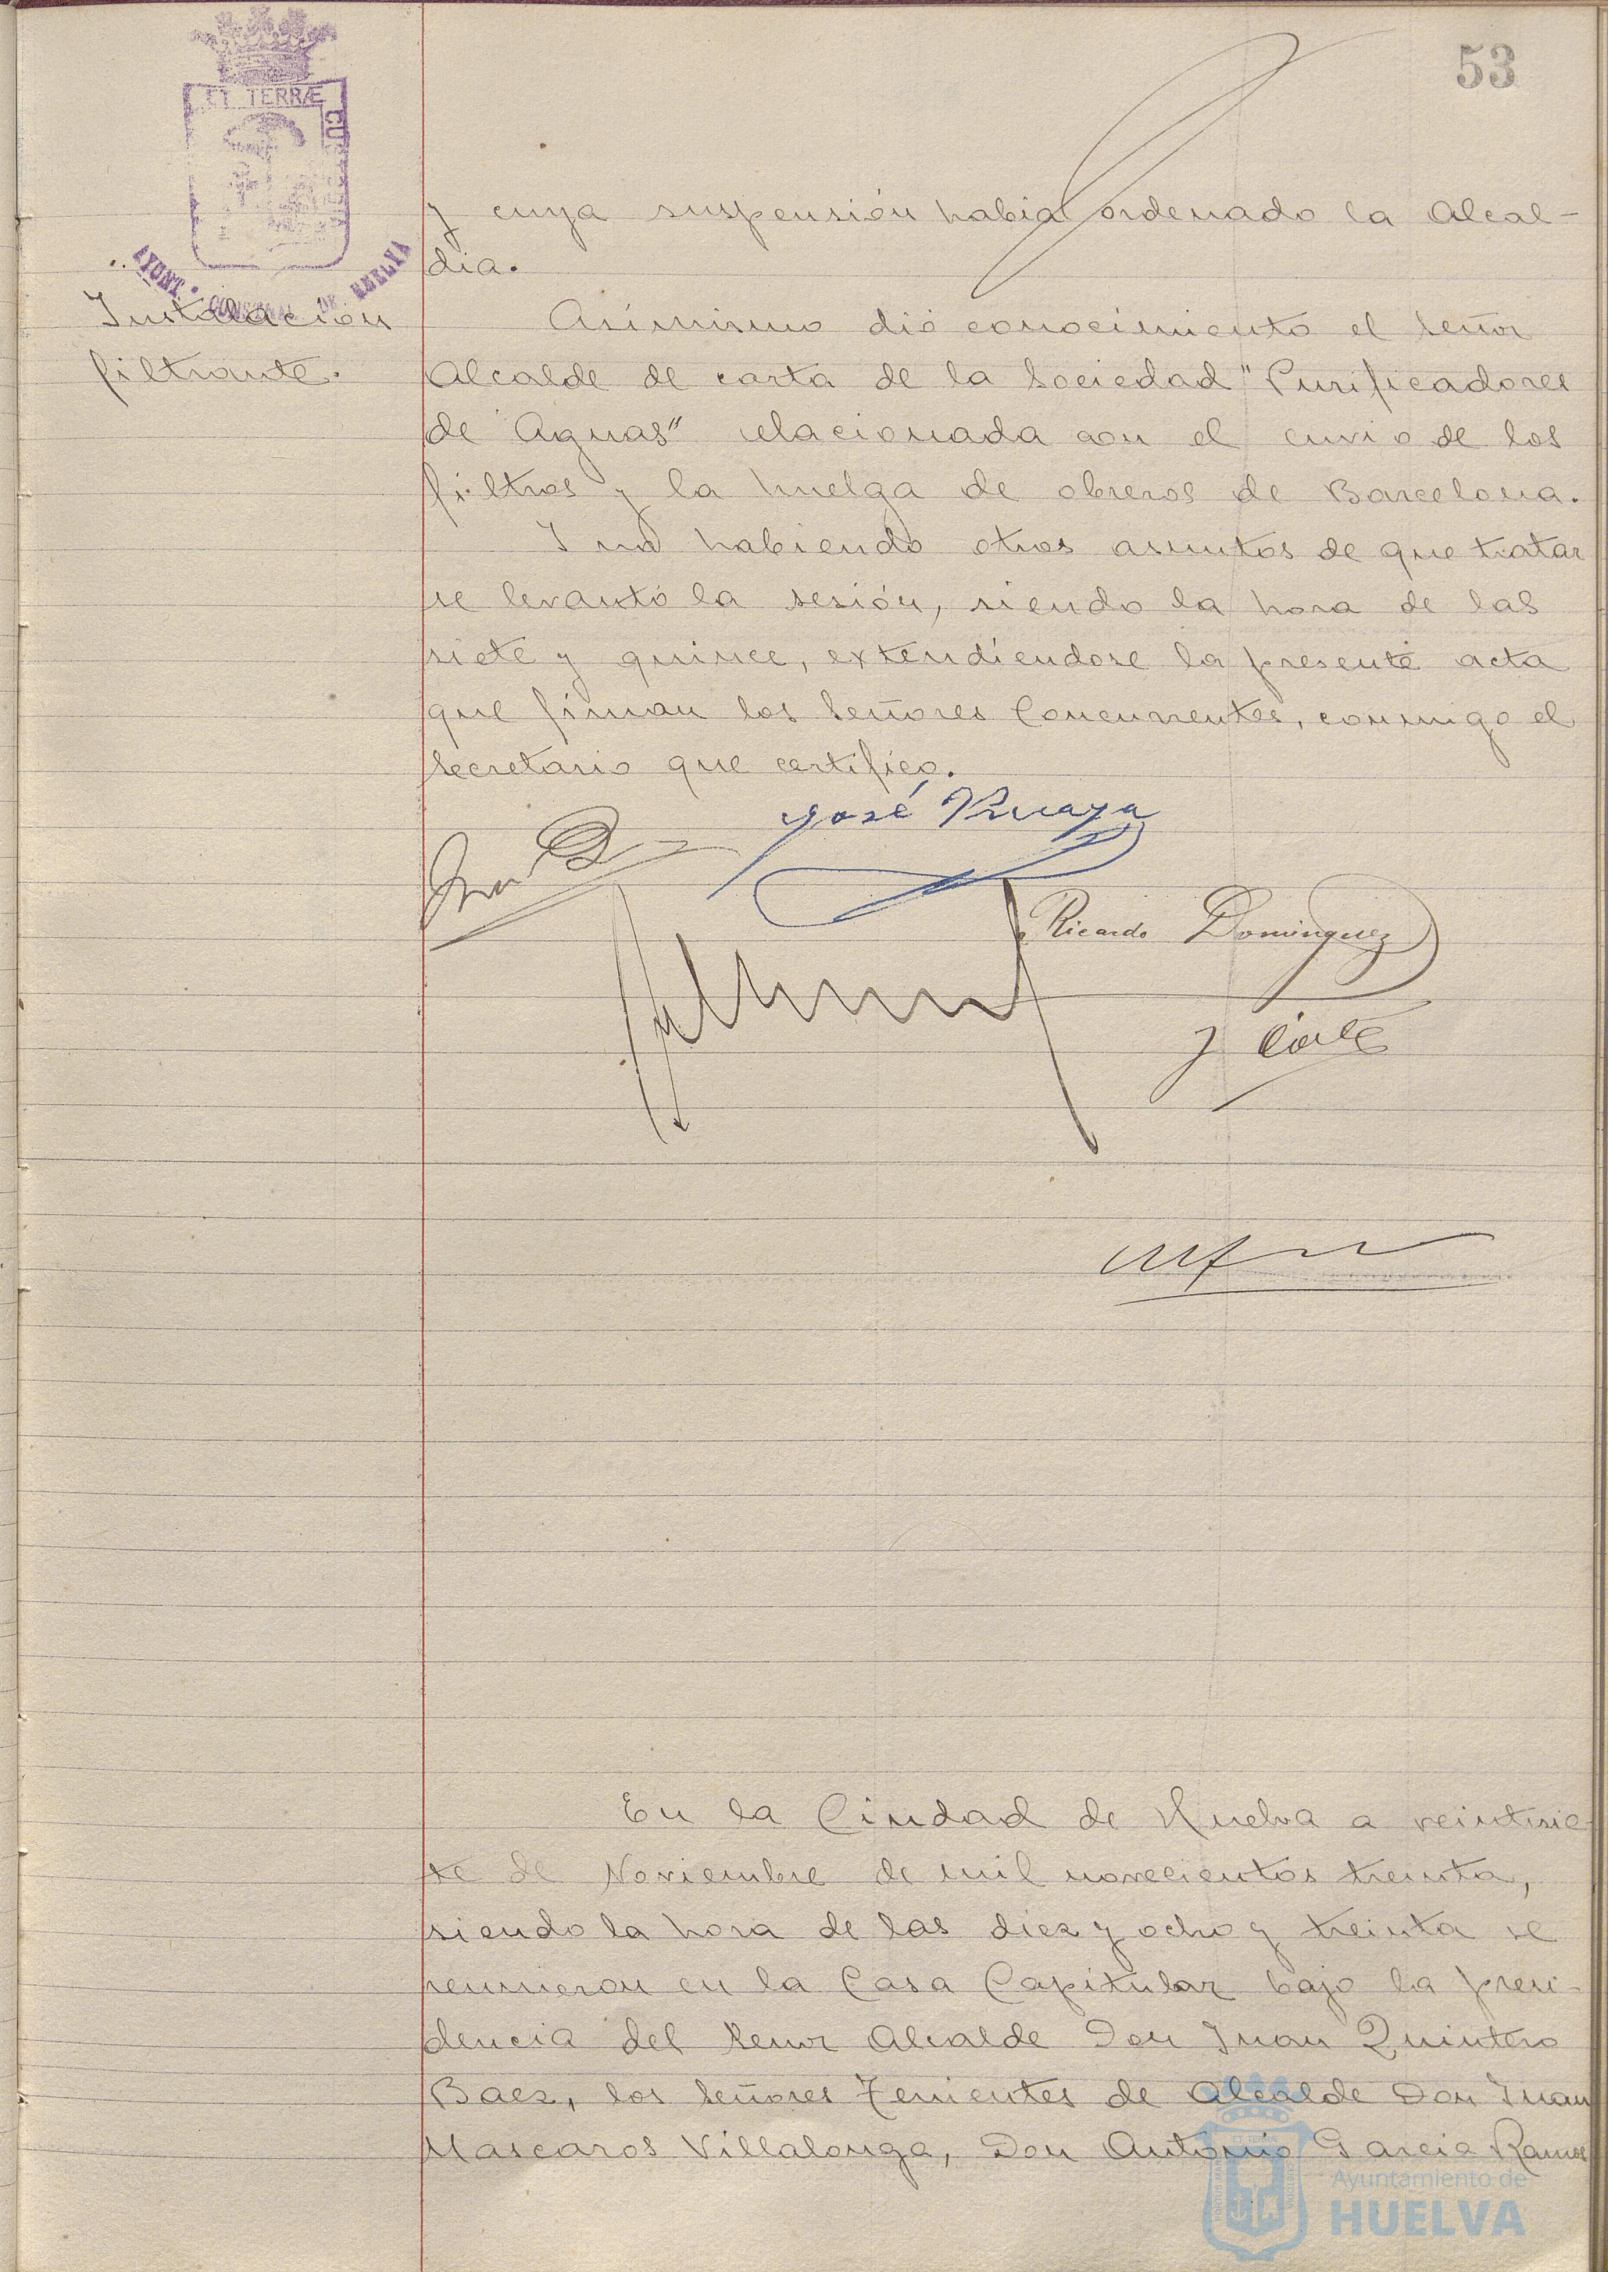 53
ET TERRÆ
CU
AYUNT. DE HUELVA
y cuya suspensión habia ordenado la Alcal-
dia.
Instalación
filtrante.
Asímismo dió conocimiento el señor
Alcalde de carta de la Sociedad "Purificadores
de Aguas" relacionada con el envio de los
filtros y la huelga de obreros de Barcelona.
Y no habiendo otros asuntos de que tratar
se levantó la sesión, siendo la hora de las
siete y quince, extendiendose la presente acta
que firman los señores Concurrentes, conmigo el
Secretario que certifico.
José
Ricardo Dominguez
En la Ciudad de Huelva a veintisie-
te de Noviembre de mil novecientos treinta,
siendo la hora de las diez y ocho y treinta se
reunieron en la Casa Capitular bajo la presi-
dencia del Señor Alcalde Don Juan Quintero
Baez, los señores Tenientes de Alcalde Don Juan
Mascaros Villalonga, Don Antonio Garcia Ramos
Ayuntamiento de
HUELVA